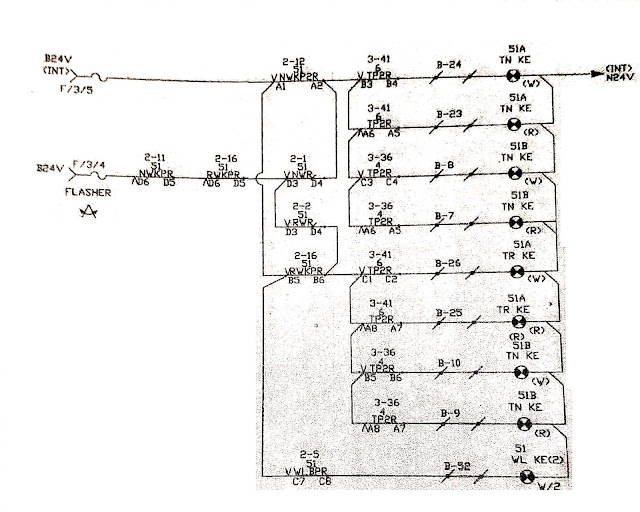 B24V
(INT)
F/3/5
2-12
51
V NWKP2R
A1 A2
3-41
6
V TP2R
B3 B4
B-24
51A
TN KE
(W)
(INT)
N24V
3-41
6
TP2R
A6 A5
B-23
51A
TN KE
(R)
B24V
F/3/4
FLASHER
2-11
51
NWKPR
D6 D5
2-16
51
RWKPR
D6 D5
2-1
51
V NWR
D3 D4
3-36
4
V TP2R
C3 C4
B-8
51B
TN KE
(W)
2-2
51
V RWR
D3 D4
3-36
4
TP2R
A6 A5
B-7
51B
TN KE
(R)
2-16
51
V RWKPR
B5 B6
3-41
6
V TP2R
C1 C2
B-26
51A
TR KE
(W)
3-41
6
TP2R
A8 A7
B-25
51A
TR KE
(R)
(R)
3-36
4
V TP2R
B5 B6
B-10
51B
TN KE
(W)
3-36
4
TP2R
A8 A7
B-9
51B
TN KE
(R)
2-5
51
V WLBPR
C7 C8
B-52
51
WL KE(2)
W/2